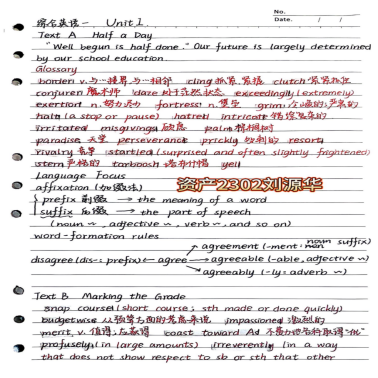 No.
Date. / /
综合英语一 Unit 1.
Text A Half a Day
"Well begun is half done." Our future is largely determined
by our school education.
Glossary
border v. 与…接界,与…相邻 cling 抓紧,紧握 clutch 紧紧抓住
conjurer 魔术师 daze 处于茫然状态 exceedingly (extremely)
exertion n. 努力,尽力 fortress n. 堡垒 grim
halt (a stop or pause) hatred intricate 错综复杂的
irritated misgivings 疑虑 palm 棕榈树
paradise 天堂 perseverance prickly 多刺的 resort
rivalry 竞争 startled (surprised and often slightly frightened)
stern 严格的 tarboosh yell
Language Focus
affixation (加缀法)
资产2302刘源华
prefix 前缀 → the meaning of a word
suffix 后缀 → the part of speech
(noun ~, adjective ~, verb ~, and so on)
word-formation rules
agreement (-ment: noun suffix)
disagree (dis-: prefix) ← agree → agreeable (-able, adjective ~)
agreeably (-ly: adverb ~)
Text B Marking the Grade
snap course (short course; sth made or done quickly)
budgetwise 从预算方面的考虑来说 impassioned 激烈的
merit v. 值得,应获得 coast toward
profusely (in large amounts) irreverently (in a way
that does not show respect to sb or sth that other